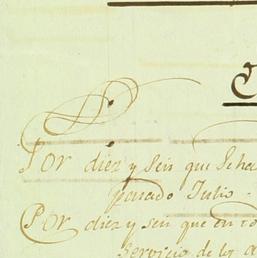 Por diez y seis que Se ha
pasado Julio
Por diez y seis que en to
Servicio de la